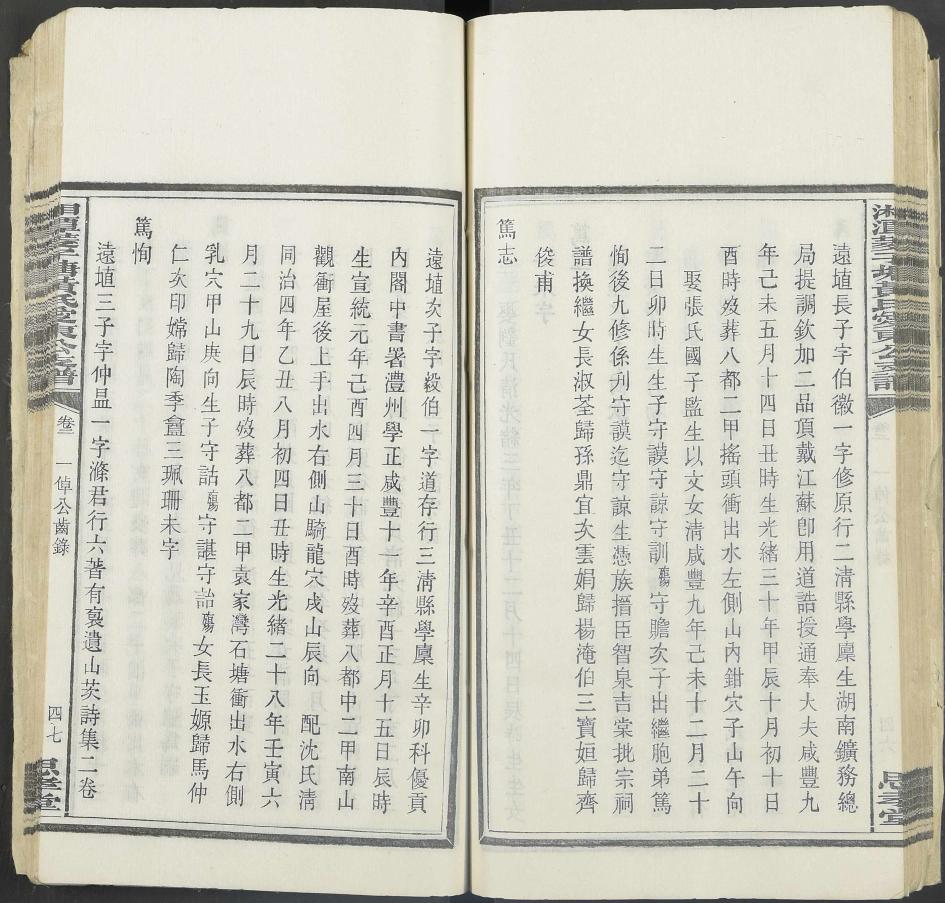 遠埴長子字伯徽一字修原行二清縣學廩生湖南鑛務總
局提調欽加二品頂戴江蘇卽用道誥授通奉大夫咸豐九
年己未五月十四日丑時生光緒三十年甲辰十月初十日
酉時歿葬八都二甲搖頭衝出水左側山內鉗穴子山午向
娶張氏國子監生以文女淸咸豐九年己未十二月二十
二日卯時生生子守謨守諒守訓殤守贍次子出繼胞弟篤
恂後九修係刋守謨迄守諒生慿族搢臣智泉吉棠批宗祠
譜換繼女長淑荃歸孫鼎宜次雲娟歸楊淹伯三寶姮歸齊
俊甫
篤志
遠埴次子字毅伯一字道存行三淸縣學廩生辛卯科優貢
內閣中書署澧州學正咸豐十一年辛酉正月十五日辰時
生宣統元年己酉四月三十日酉時歿葬八都中二甲南山
觀衝屋後上手出水右側山騎龍穴戌山辰向 配沈氏淸
同治四年乙丑八月初四日丑時生光緒二十八年壬寅六
月二十九日辰時歿葬八都二甲袁家灣石塘衝出水右側
乳穴甲山庚向生子守詁殤守諶守詒殤女長玉嫄歸馬仲
仁次印嫦歸陶季龕三珮珊未字
篤恂
遠埴三子字仲昷一字滌君行六著有裒遺山茨詩集二卷
卷二 一倬公齒錄
四七
思孝堂